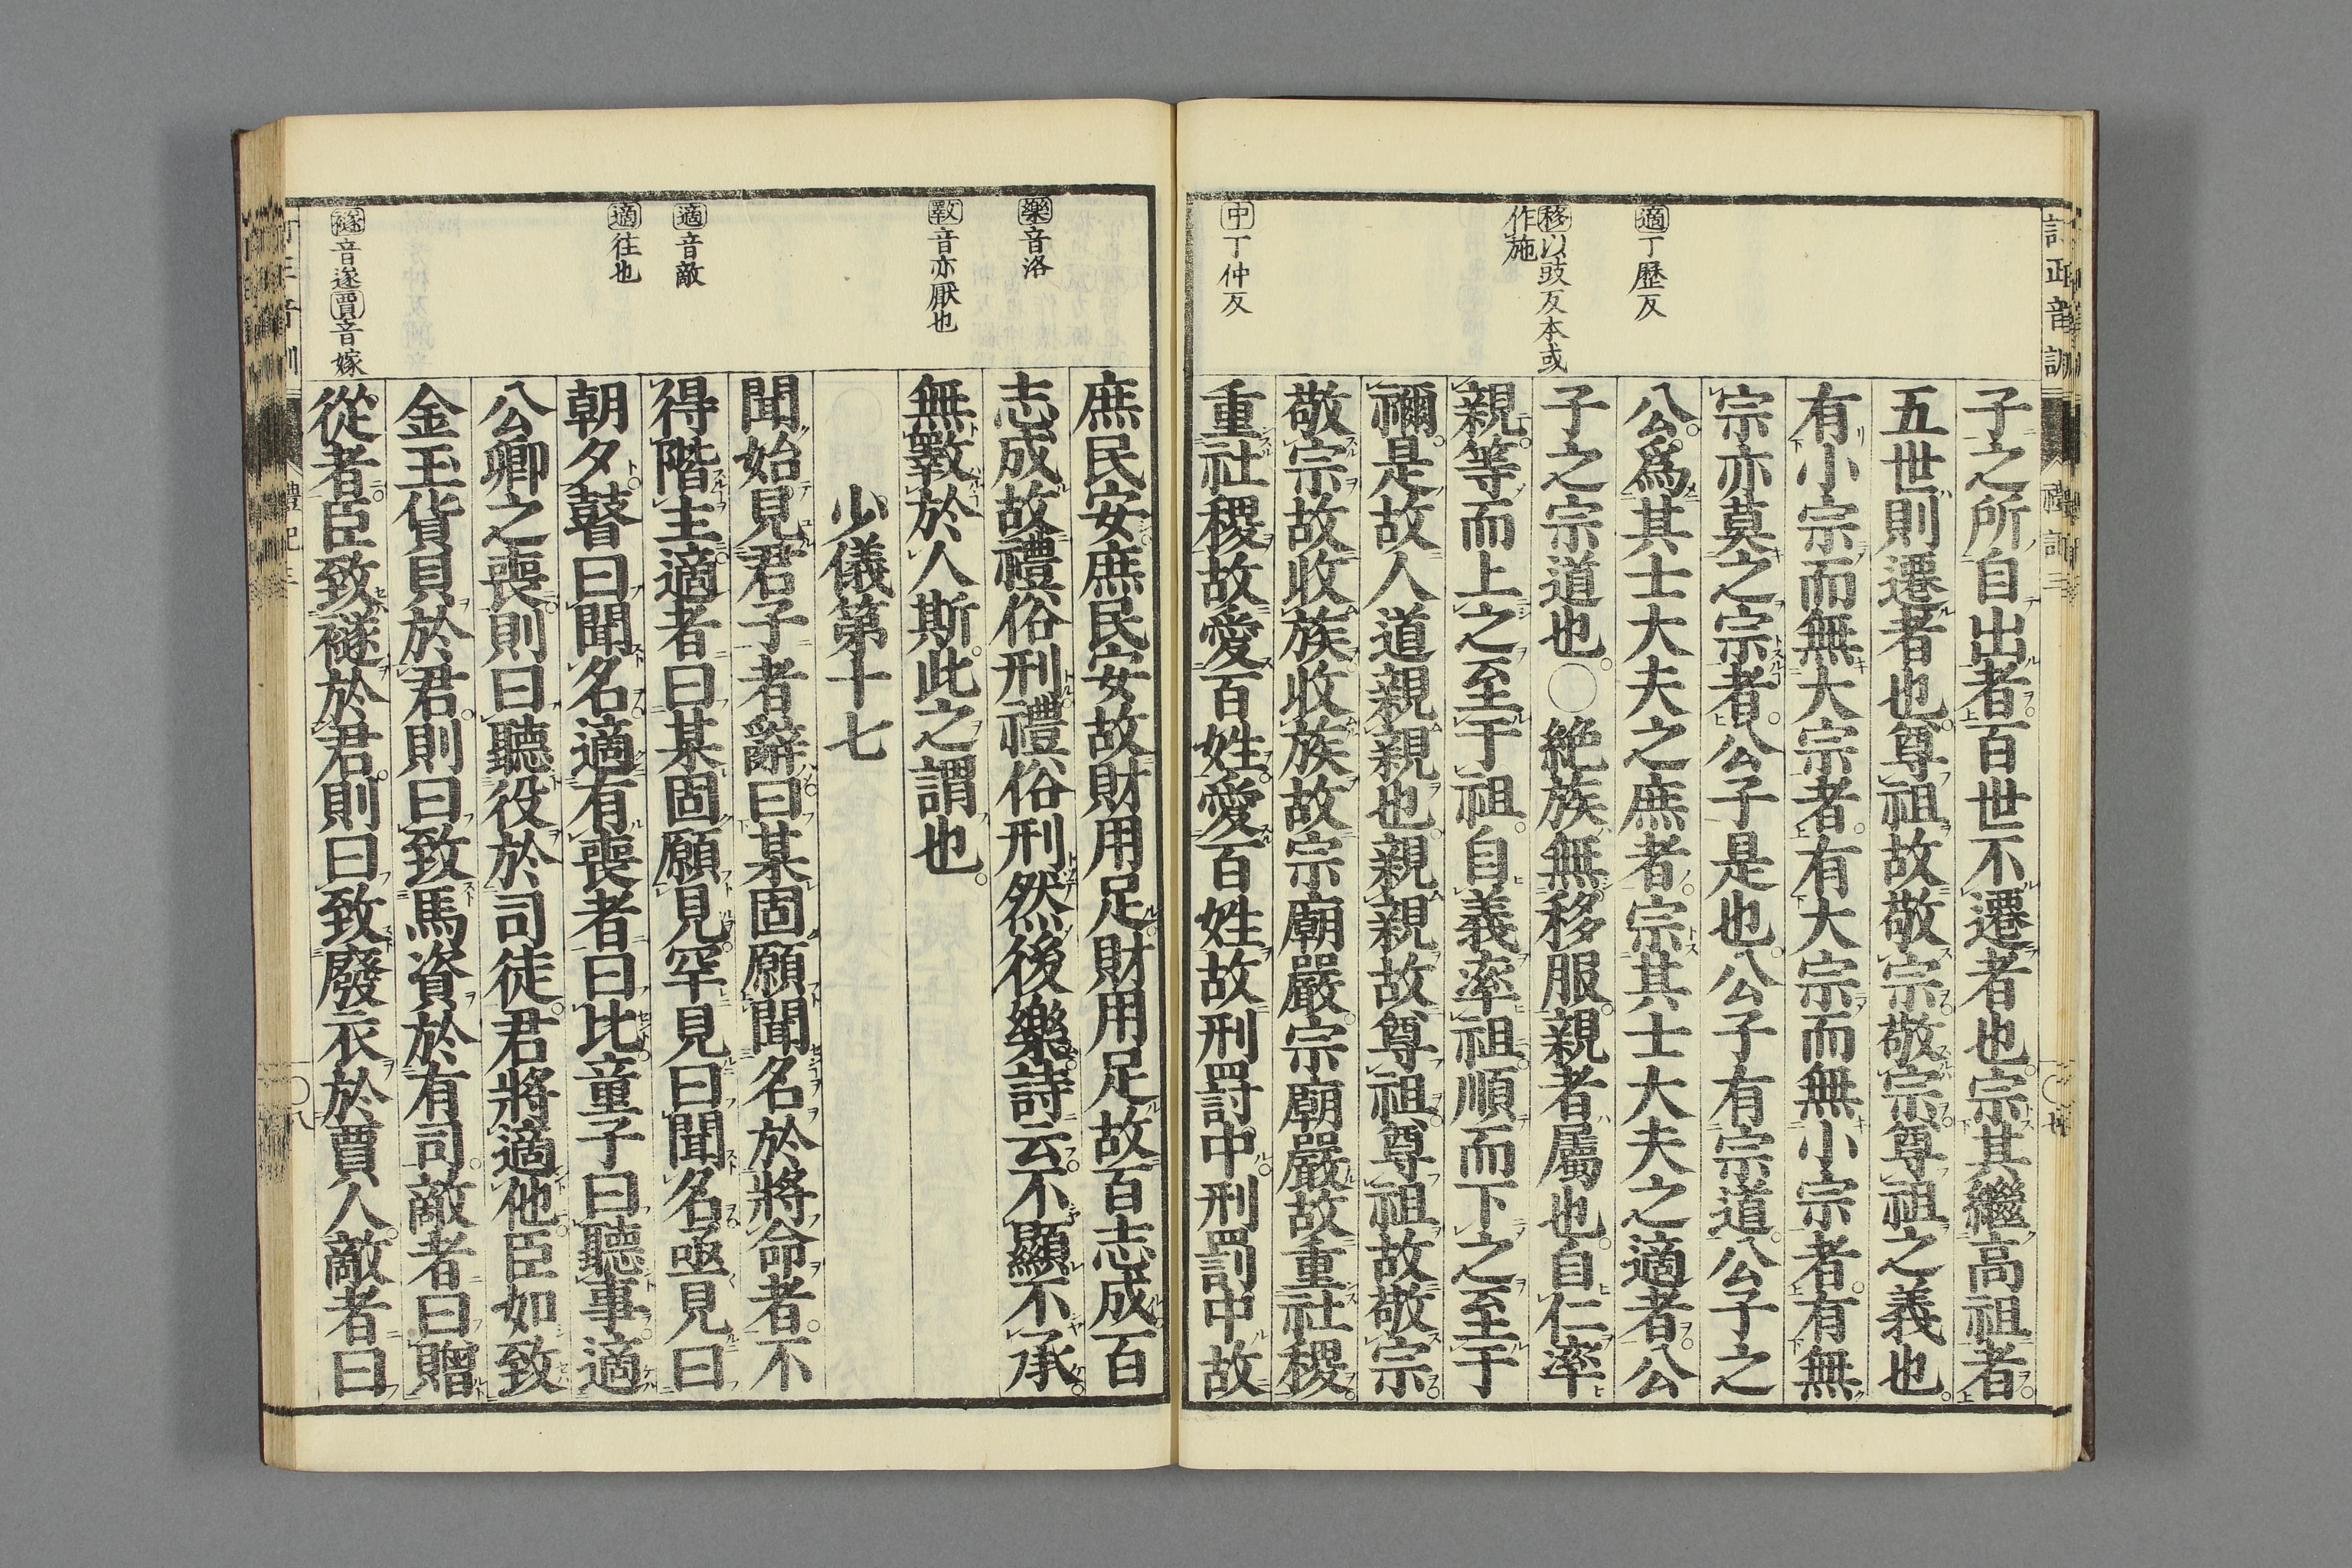 適丁歷反
移以豉反本或
作施
中丁仲反
子之所自出者百世不遷者也宗其繼高祖者
五世則遷者也尊祖故敬宗敬宗尊祖之義也
有小宗而無大宗者有大宗而無小宗者有無
宗亦莫之宗者公子是也公子有宗道公子之
公爲其士大夫之庶者宗其士大夫之適者公
子之宗道也〇絶族無移服親者屬也自仁率
親等而上之至于祖自義率祖順而下之至于
禰是故人道親親也親親故尊祖尊祖故敬宗
敬宗故收族收族故宗廟嚴宗廟嚴故重社稷
重社稷故愛百姓愛百姓故刑罰中刑罰中故
樂音洛
斁音亦厭也
適音敵
適往也
襚音遂賈音嫁
庶民安庶民安故財用足財用足故百志成百
志成故禮俗刑禮俗刑然後樂詩云不顯不承
無斁於人斯此之謂也
少儀第十七
聞始見君子者辭曰某固願聞名於將命者不
得階主適者曰某固願見罕見曰聞名亟見曰
朝夕瞽曰聞名適有喪者曰比童子曰聽事適
公卿之喪則曰聽役於司徒君將適他臣如致
金玉貨貝於君則曰致馬資於有司敵者曰贈
從者臣致襚於君則曰致廢衣於賈人敵者曰